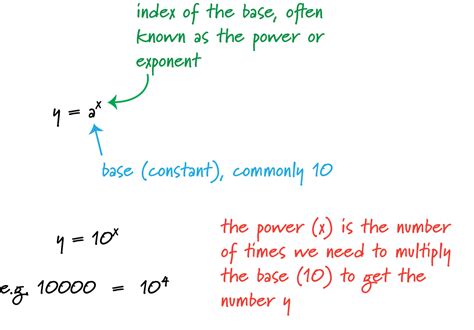 index of the base, often
known as the power or
exponent
y = aˣ
base (constant), commonly 10
y = 10ˣ
e.g. 10000 = 10⁴
the power (x) is the number
of times we need to multiply
the base (10) to get the
number y